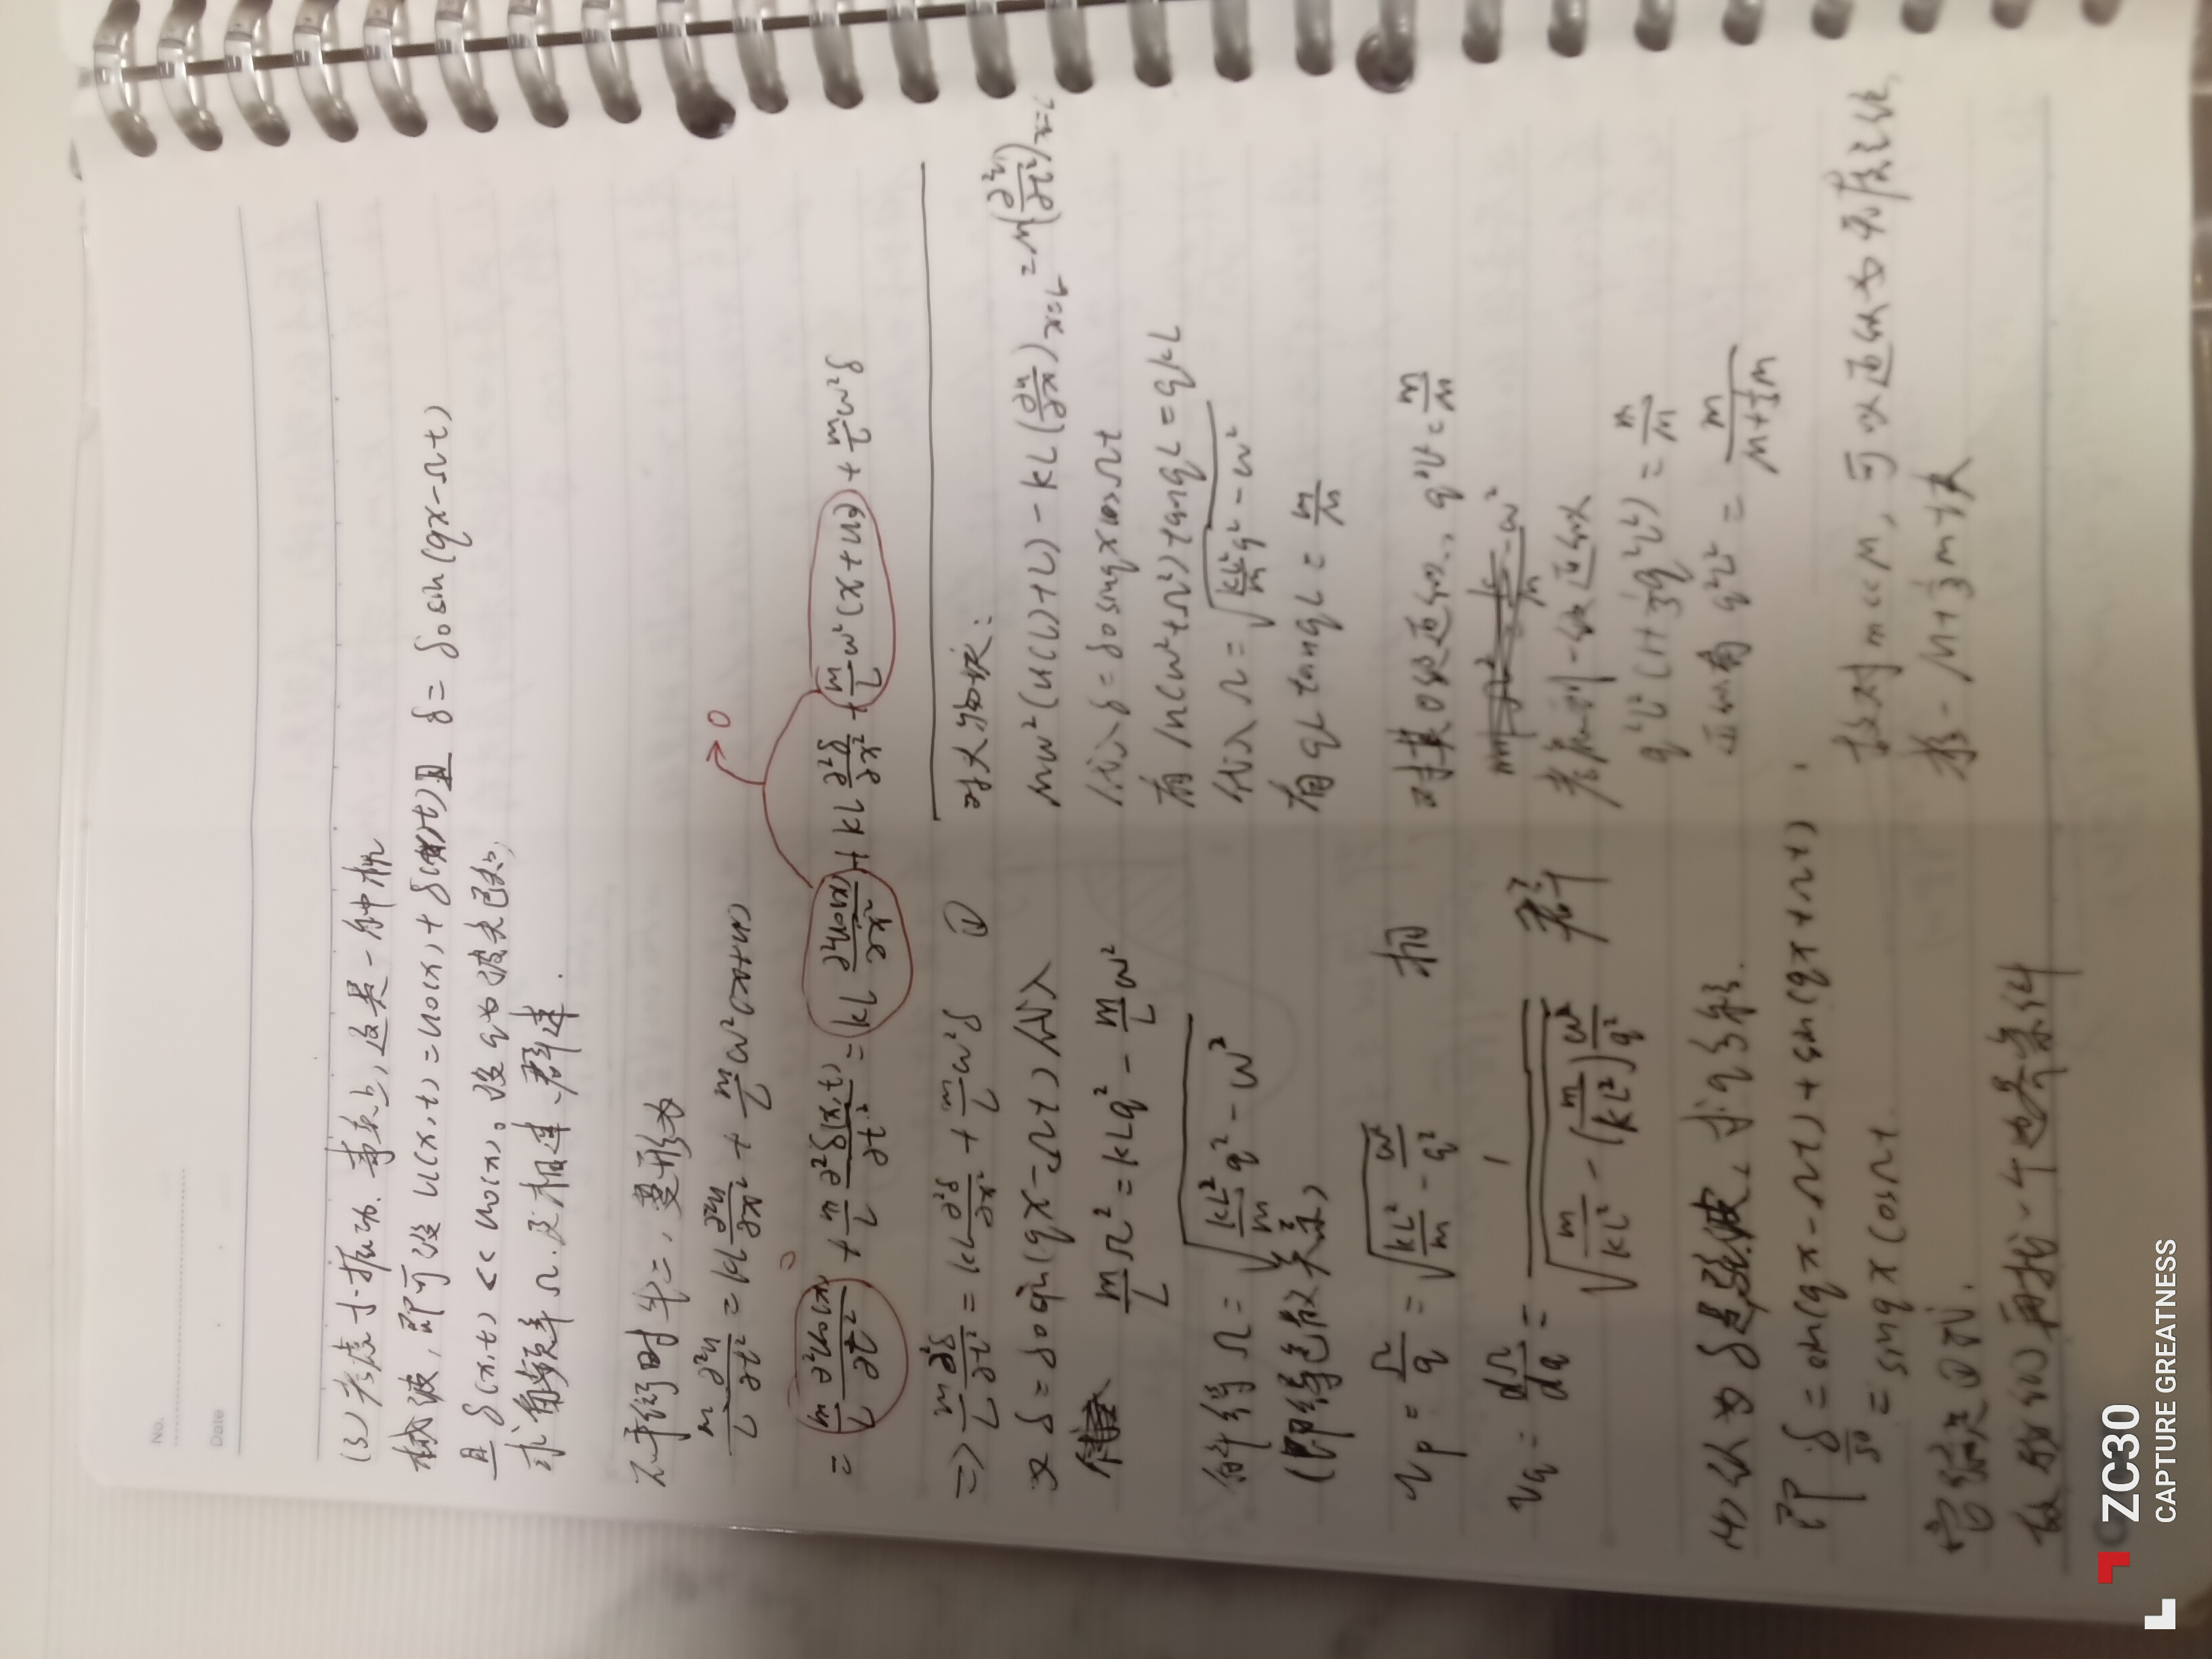 No.
Date
(3) 考虑小振动. 事实上, 这是一种机
械波, 即可设 u(x,t) = u₀(x) + δ(x,t) 且 δ = δ₀ sin(qx-Ωt)
且 δ(x,t) << u₀(x)。设 q为波矢已知,
求角频率 Ω. 及相速、群速.
不平衡时 牛二, 变形为
m/L ∂²u/∂t² = kL ∂²u/∂x² + m/L ω²(x+u)
= m/L ∂²u₀(x)/∂t² + m/L ∂²δ(x,t)/∂t² = kL ∂²u₀(x)/∂x² + kL ∂²δ/∂x² + m/L ω²(x+u₀) + m/L ω²δ
0
→0
=> m/L ∂²δ/∂t² = kL ∂²δ/∂x² + m/L ω²δ ①
又 δ = δ₀ sin(qx-Ωt) 代入
m/L Ω² = kLq² - m/L ω²
解得 Ω = √(kL²/m q² - ω²)
(即得色散关系)
v_p = Ω/q = √(kL²/m - ω²/q²) 相
v_g = dΩ/dq = 1/√(m/kL² - (m/kL²)² ω²/q²) 群
(4) 认为 δ是驻波、求 q 多解.
即 δ/δ₀ = sin(qx-Ωt) + sin(qx+Ωt)
= sinqx cosΩt.
它满足①式.
故我们再找一个边界条件
对大物块:
Mω²(u(L)+L) - kL(∂u/∂x)x=L = M(∂²u/∂t²)x=L
代入 δ = δ₀ sinqx cosΩt
有 M(ω²+Ω²)tanqL = qkL
代入 Ω = √(kL²/m q² - ω²)
有 qL tanqL = m/M
对其0级近似., q²L² = m/M
考虑到一级近似
q²L²(1+⅓q²L²) = m/M
近似有 q²L² = m/(M+⅓m)
故对 m<<M, 可以近似为
M+⅓m